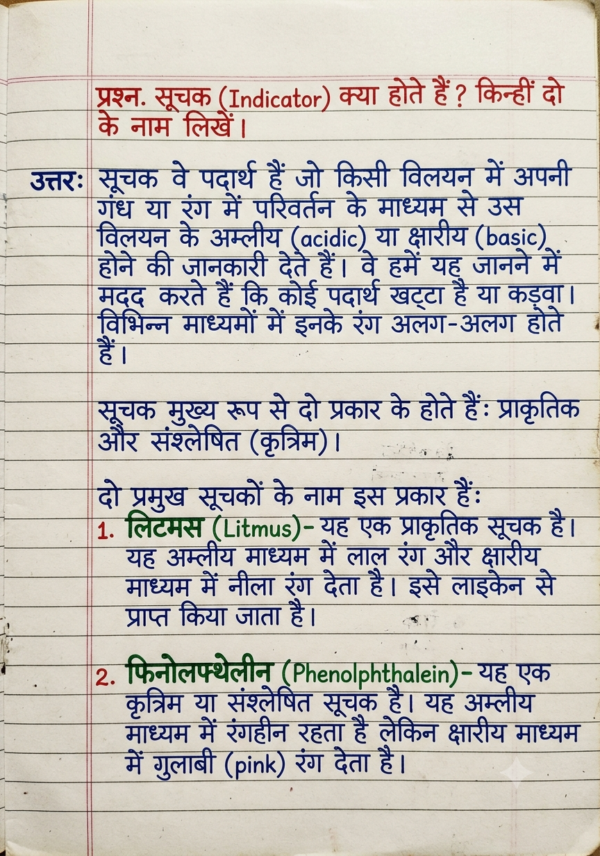 प्रश्न. सूचक (Indicator) क्या होते हैं? किन्हीं दो
के नाम लिखें।
उत्तरः सूचक वे पदार्थ हैं जो किसी विलयन में अपनी
गंध या रंग में परिवर्तन के माध्यम से उस
विलयन के अम्लीय (acidic) या क्षारीय (basic)
होने की जानकारी देते हैं। वे हमें यह जानने में
मदद करते हैं कि कोई पदार्थ खट्टा है या कड़वा।
विभिन्न माध्यमों में इनके रंग अलग-अलग होते
हैं।
सूचक मुख्य रूप से दो प्रकार के होते हैंः प्राकृतिक
और संश्लेषित (कृत्रिम)।
दो प्रमुख सूचकों के नाम इस प्रकार हैंः
1. लिटमस (Litmus)- यह एक प्राकृतिक सूचक है।
यह अम्लीय माध्यम में लाल रंग और क्षारीय
माध्यम में नीला रंग देता है। इसे लाइकेन से
प्राप्त किया जाता है।
2. फिनोलफ्थेलीन (Phenolphthalein)- यह एक
कृत्रिम या संश्लेषित सूचक है। यह अम्लीय
माध्यम में रंगहीन रहता है लेकिन क्षारीय माध्यम
में गुलाबी (pink) रंग देता है।